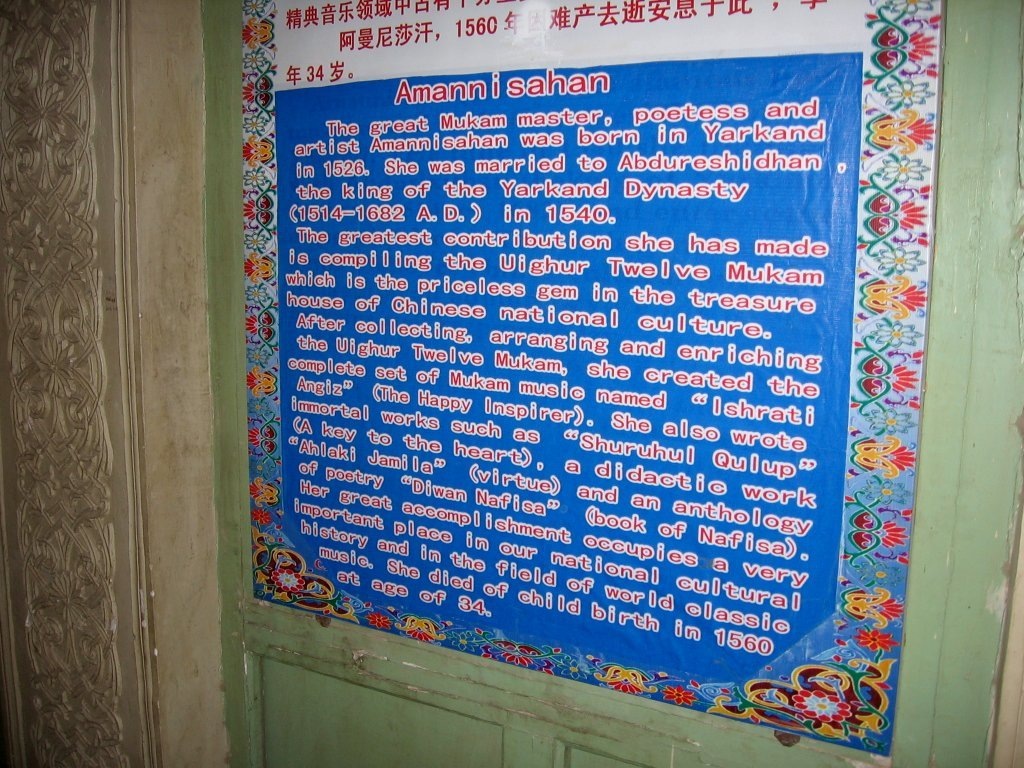 精典音乐领域中占有十分
阿曼尼莎汗，1560年因难产去逝安息于此，享
年34岁。
Amannisahan
The great Mukam master, poetess and
artist Amannisahan was born in Yarkand
in 1526. She was married to Abdureshidhan ,
the king of the Yarkand Dynasty
(1514-1682 A.D.) in 1540.
The greatest contribution she has made
is compiling the Uighur Twelve Mukam
which is the priceless gem in the treasure
house of Chinese national culture.
After collecting, arranging and enriching
the Uighur Twelve Mukam, she created the
complete set of Mukam music named “Ishrati
Angiz” (The Happy Inspirer). She also wrote
immortal works such as “Shuruhul Qulup”
(A key to the heart), a didactic work
“Ahlaki Jamila” (virtue) and an anthology
of poetry “Diwan Nafisa” (book of Nafisa).
Her great accomplishment occupies a very
important place in our national cultural
history and in the field of world classic
music. She died of child birth in 1560
at age of 34.